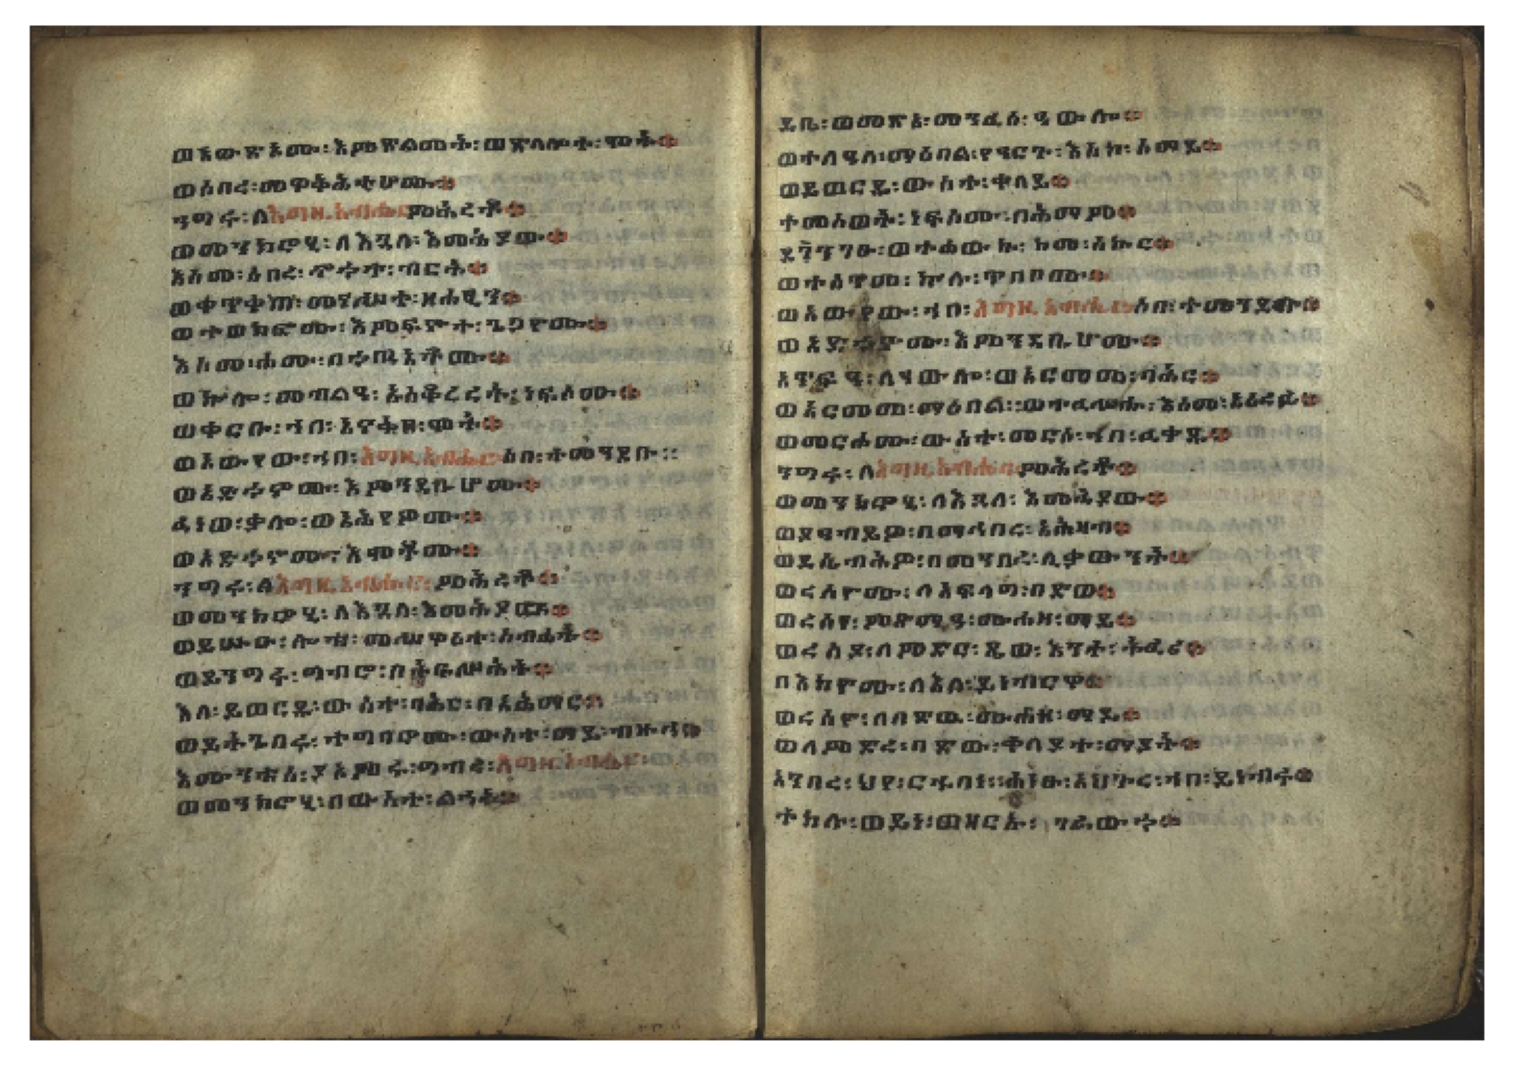 ወአውፅኦሙ፡እምጽልመት፡ወጽላሎተ፡ሞት።
ወሰበረ፡መዋቅሕቲሆሙ።
ንግሩ፡ለእግዚአብሔር፡ምሕረቶ።
ወመንክሮሂ፡ለእጓለ፡እመሕያው።
እስመ፡ሰበረ፡ኆኃተ፡ብርት።
ወቀጥቀጠ፡መናሥግተ፡ዘሐፂን።
ወተወክፎሙ፡እምፍኖተ፡ጌጋዮሙ።
እስመ፡ሐሙ፡በኃጢአቶሙ።
ወኵሎ፡መብልዐ፡አስቆረረት፡ነፍሶሙ።
ወቀርቡ፡ኀበ፡አናቅጸ፡ሞት።
ወአውየዉ፡ኀበ፡እግዚአብሔር፡ሶበ፡ተመንደቡ።
ወአድኀኖሙ፡እምንዳቤሆሙ።
ፈነወ፡ቃሎ፡ወአሕየዎሙ።
ወአድኀኖሙ፡እሞቶሙ።
ንግሩ፡ለእግዚአብሔር፡ምሕረቶ።
ወመንክሮሂ፡ለእጓለ፡እመሕያው።
ወይሡዑ፡ሎቱ፡መሥዋዕተ፡ስብሐት።
ወይንግሩ፡ግብሮ፡በትፍሥሕት።
እለ፡ይወርዱ፡ውስተ፡ባሕር፡በአሕማር።
ወይትጌበሩ፡ተግባሮሙ፡ውስተ፡ማይ፡ብዙኅ።
እሙንቱሰ፡ያአምሩ፡ግብረ፡እግዚአብሔር።
ወመንክሮሂ፡በውስተ፡ልጐት።
ይቤ፡ወመጽአ፡መንፈሰ፡ዐውሎ።
ወተለዐለ፡ማዕበል፡የዐርጉ፡እስከ፡ሰማይ።
ወይወርዱ፡ውስተ፡ቀላይ።
ተመሰወት፡ነፍሶሙ፡በሕማም።
ደንገፁ፡ወተሐውኩ፡ከመ፡ስኩር።
ወተሰጥመ፡ኵሉ፡ጥበቦሙ።
ወአውየዉ፡ኀበ፡እግዚአብሔር፡ሶበ፡ተመንደቡ።
ወአድኀኖሙ፡እምንዳቤሆሙ።
አጥፍዐ፡ለዐውሎ፡ወአርመመ፡ባሕር።
ወአርመመ፡ማዕበል፡ወተፈሥሑ፡እስመ፡አዕረፉ።
ወመርሖሙ፡ውስተ፡መርሶ፡ኀበ፡ፈቀዱ።
ንግሩ፡ለእግዚአብሔር፡ምሕረቶ።
ወመንክሮሂ፡ለእጓለ፡እመሕያው።
ወያዐብይዎ፡በማኅበረ፡አሕዛብ።
ወይሴብሕዎ፡በመንበረ፡ሊቃውንት።
ወረሰዮሙ፡ለአፍላግ፡በድወ።
ወረሰየ፡ምጽማዐ፡ሙሐዘ፡ማይ።
ወረሰያ፡ለምድር፡ጼወ፡እንተ፡ትፈሪ።
በእከዮሙ፡ለእለ፡ይነብርዋ።
ወረሰዮ፡ለበድው፡ሙሐዘ፡ማይ።
ወለምድረ፡በድው፡ቀላያተ፡ማያት።
አንበረ፡ህየ፡ርኁባነ፡ሐነፁ፡አህጉረ፡ኀበ፡ይነብሩ።
ተከሉ፡ወይነ፡ወዘርኡ፡ገራውኀ።